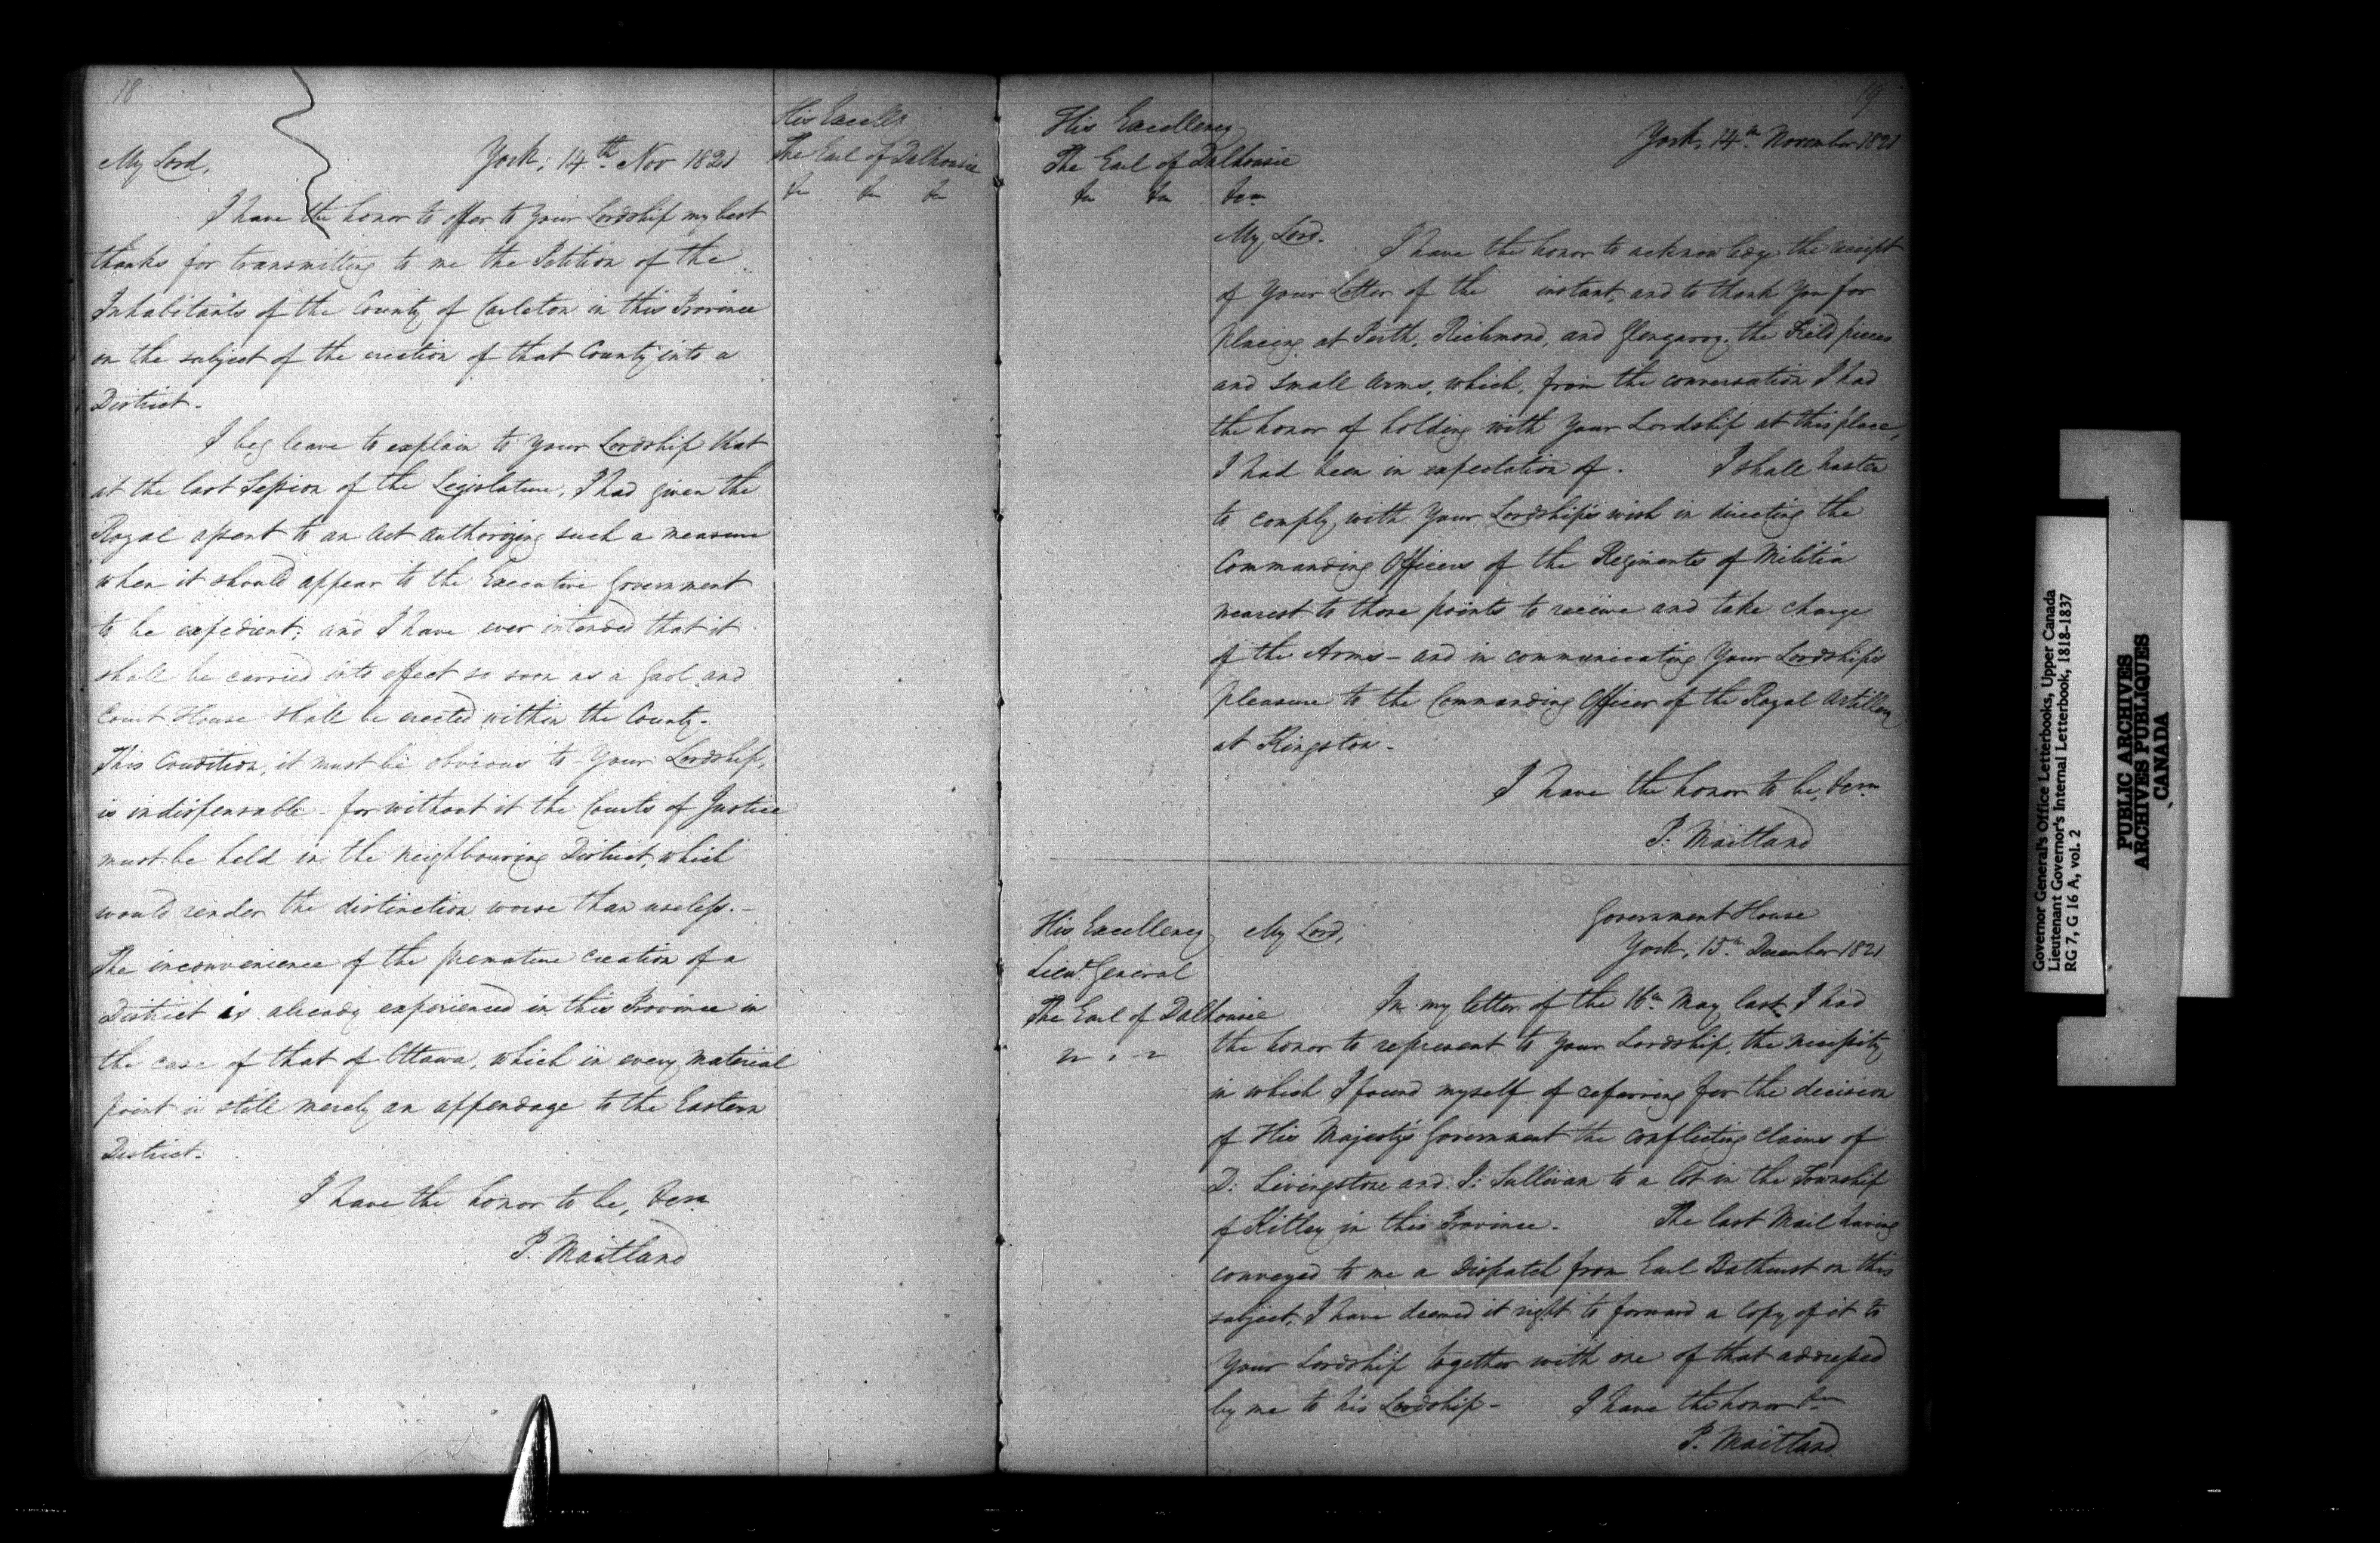 18
His Excelly
The Earl of Dalhousie
&c &c &c
York, 14th Nov 1821
My Lord,
I have the honor to offer to Your Lordship my best
thanks for transmitting to me the Petition of the
Inhabitants of the County of Carleton in this Province
on the subject of the erection of that County into a
District.
I beg leave to explain to Your Lordship that
at the last Session of the Legislature, I had given the
Royal assent to an Act authorizing such a measure
when it should appear to the Executive Government
to be expedient; and I have ever intended that it
shall be carried into effect so soon as a Gaol and
Court House shall be erected within the County.
This Condition, it must be obvious to Your Lordship,
is indispensable for without it the Courts of Justice
must be held in the neighbouring District, which
would render the distinction worse than useless. -
The inconvenience of the premature creation of a
District is already experienced in this Province in
the case of that of Ottawa, which in every material
point is still merely an appendage to the Eastern
District.
I have the honor to be, &c
P. Maitland
19
His Excellency
The Earl of Dalhousie
&c &c &c
York, 14th November 1821
My Lord.
I have the honor to acknowledge the receipt
of Your Letter of the instant, and to thank You for
placing at Perth, Richmond, and Glengarry, the Field pieces
and small arms, which, from the conversation I had
the honor of holding with Your Lordship at this place,
I had been in expectation of. I shall hasten
to comply with Your Lordship's wish in directing the
Commanding Officers of the Regiments of Militia
nearest to those points to receive and take charge
of the Arms - and in communicating Your Lordship's
pleasure to the Commanding Officer of the Royal Artillery
at Kingston -
I have the honor to be, &c
P. Maitland
His Excellency
Lieut. General
The Earl of Dalhousie
Government House
York, 15th December 1821
My Lord,
In my letter of the 16th May last I had
the honor to represent to Your Lordship, the necessity
in which I found myself of referring for the decision
of His Majesty's Government the conflicting claims of
D: Livingstone and J: Sullivan to a lot in the Township
of Kitley in this Province. The last Mail having
conveyed to me a Dispatch from Earl Bathurst on this
subject, I have deemed it right to forward a Copy of it to
Your Lordship together with one of that addressed
by me to his Lordship - I have the honor &c
P. Maitland
Governor General's Office Letterbooks, Upper Canada
Lieutenant Governor's Internal Letterbook, 1818-1837
RG 7, G 16 A, vol. 2
PUBLIC ARCHIVES
ARCHIVES PUBLIQUES
CANADA